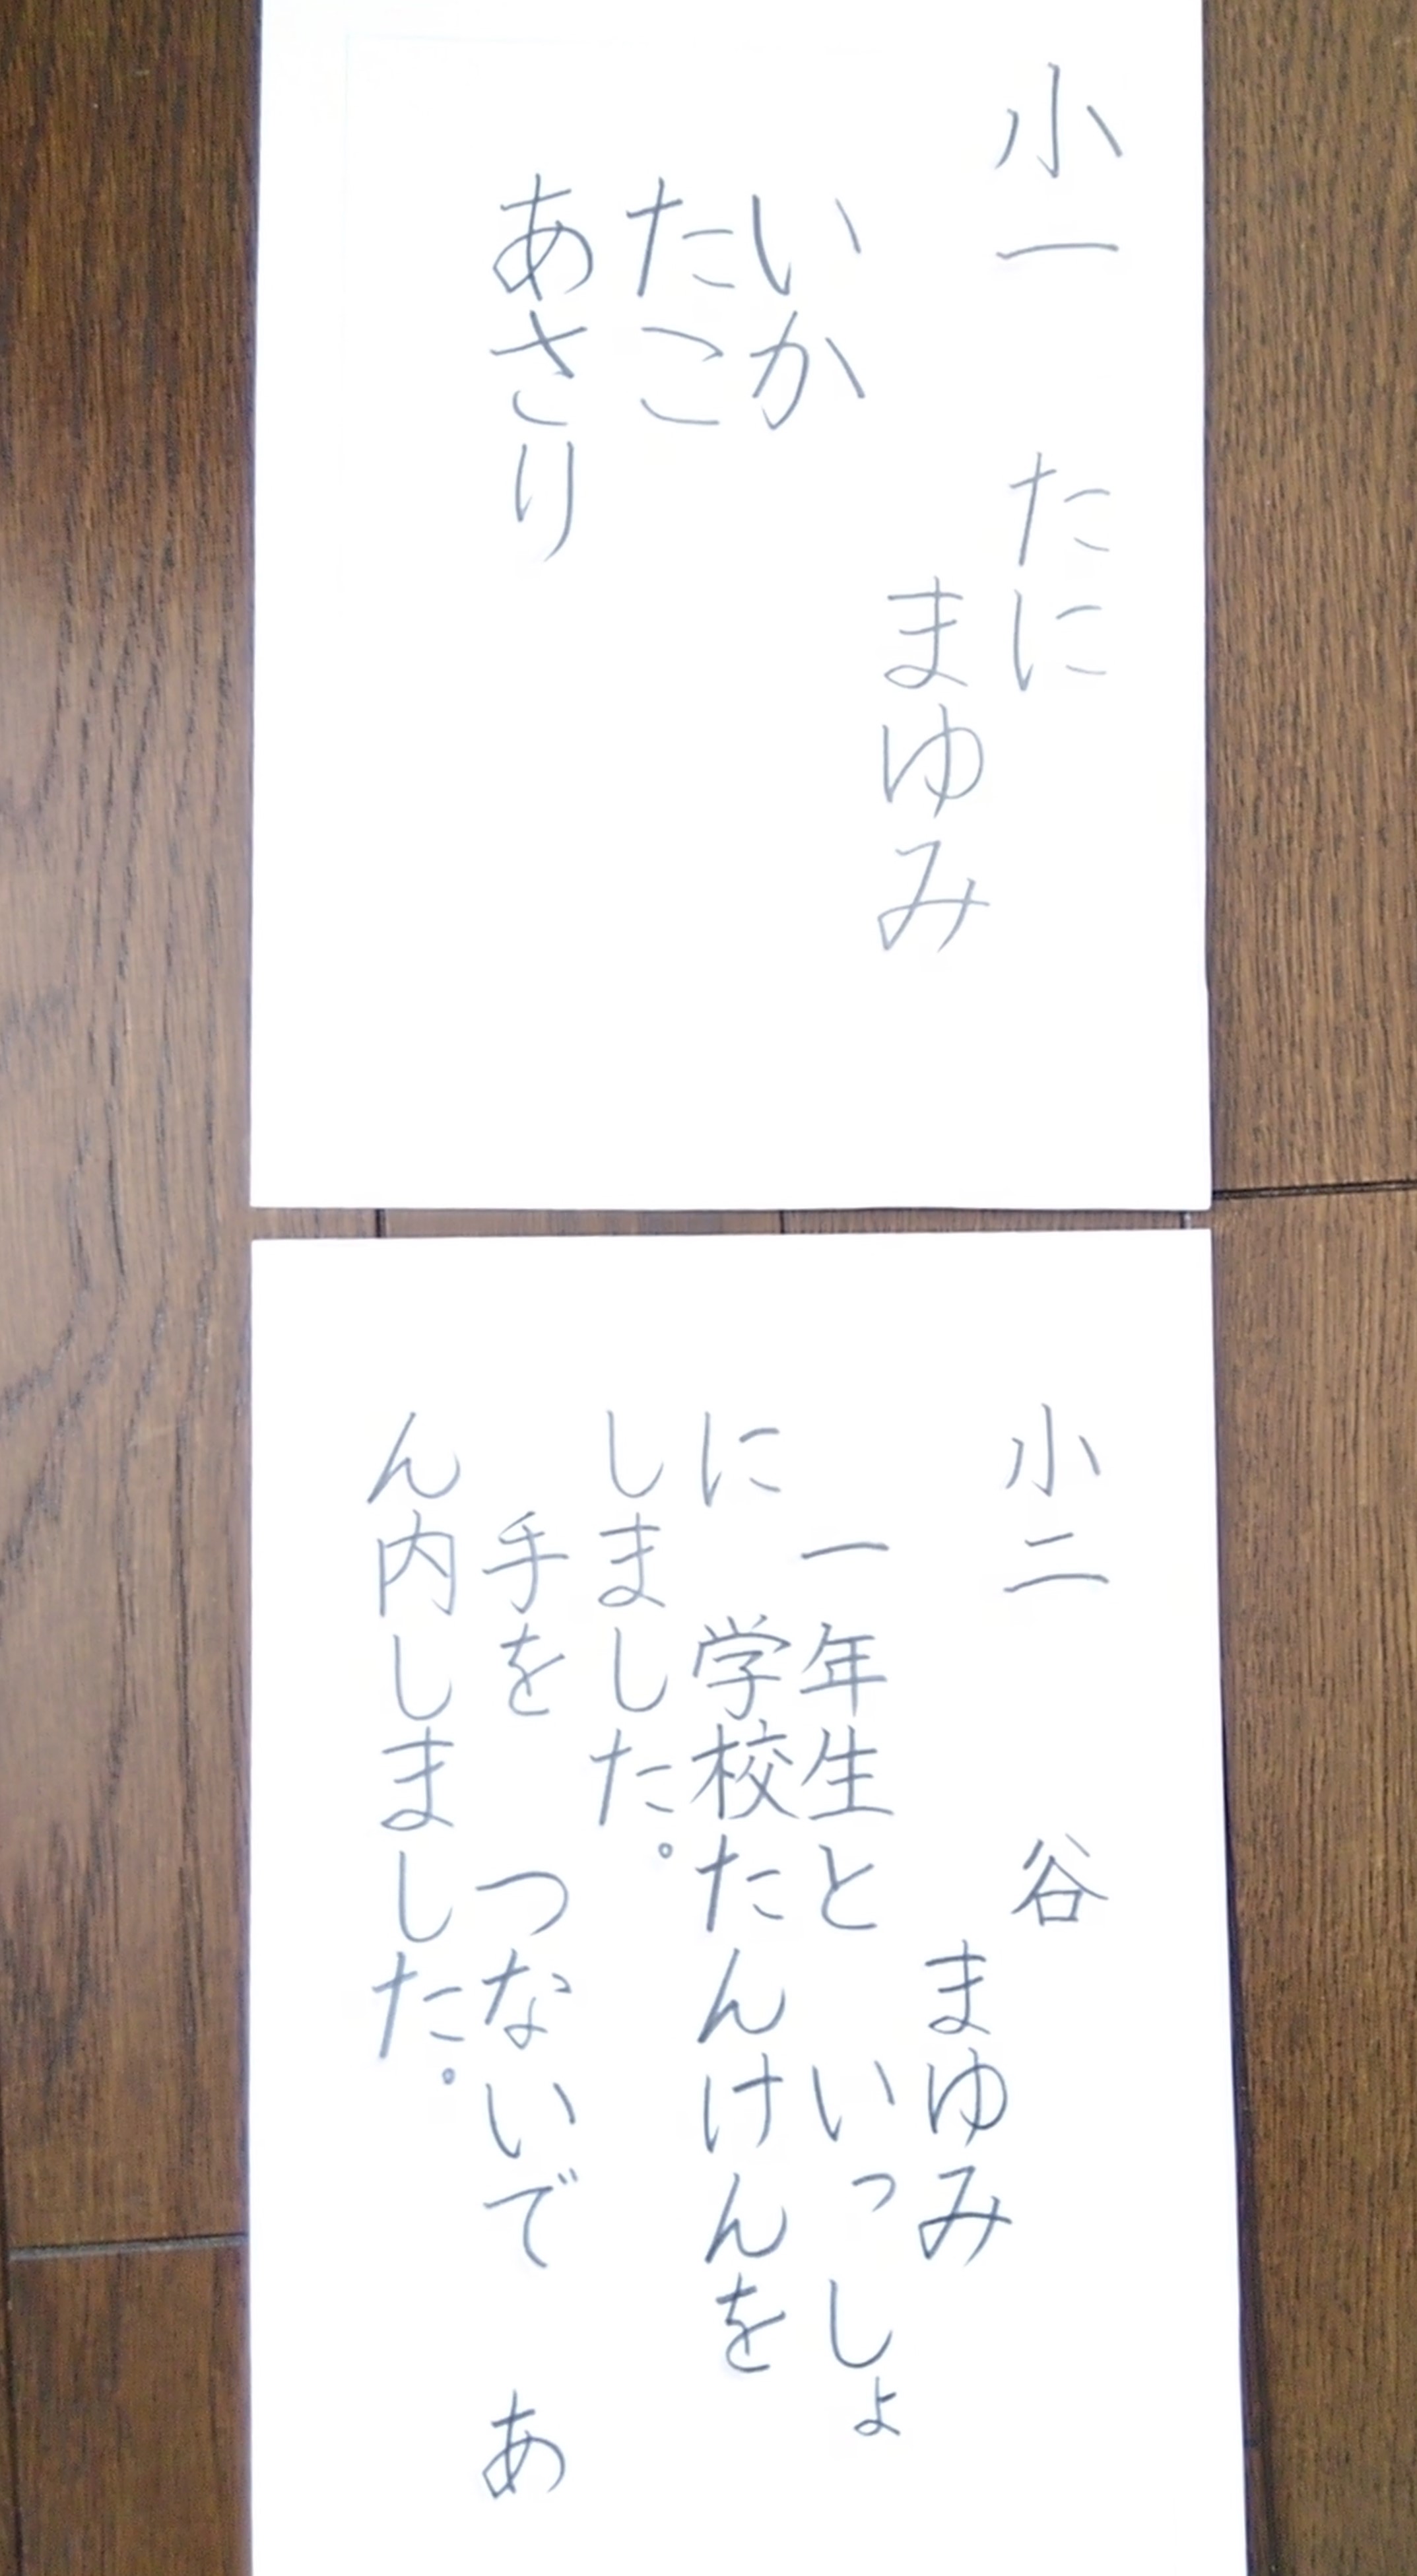 小一
たに
まゆみ
いか
たこ
あさり
小二
谷
まゆみ
一年生と いっしょ
に 学校たんけんを
しました。
手を つないで あ
ん内しました。